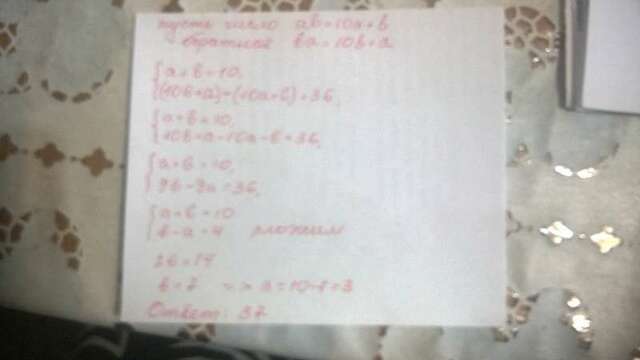 пусть число ab=10a+b
обратное ba=10b+a
{a+b=10,
{(10b+a)-(10a+b)=36,
{a+b=10,
{10b+a-10a-b=36,
{a+b=10,
{9b-9a=36,
{a+b=10
{b-a=4 сложим
2b=14
b=7 => a=10-7=3
Ответ: 37